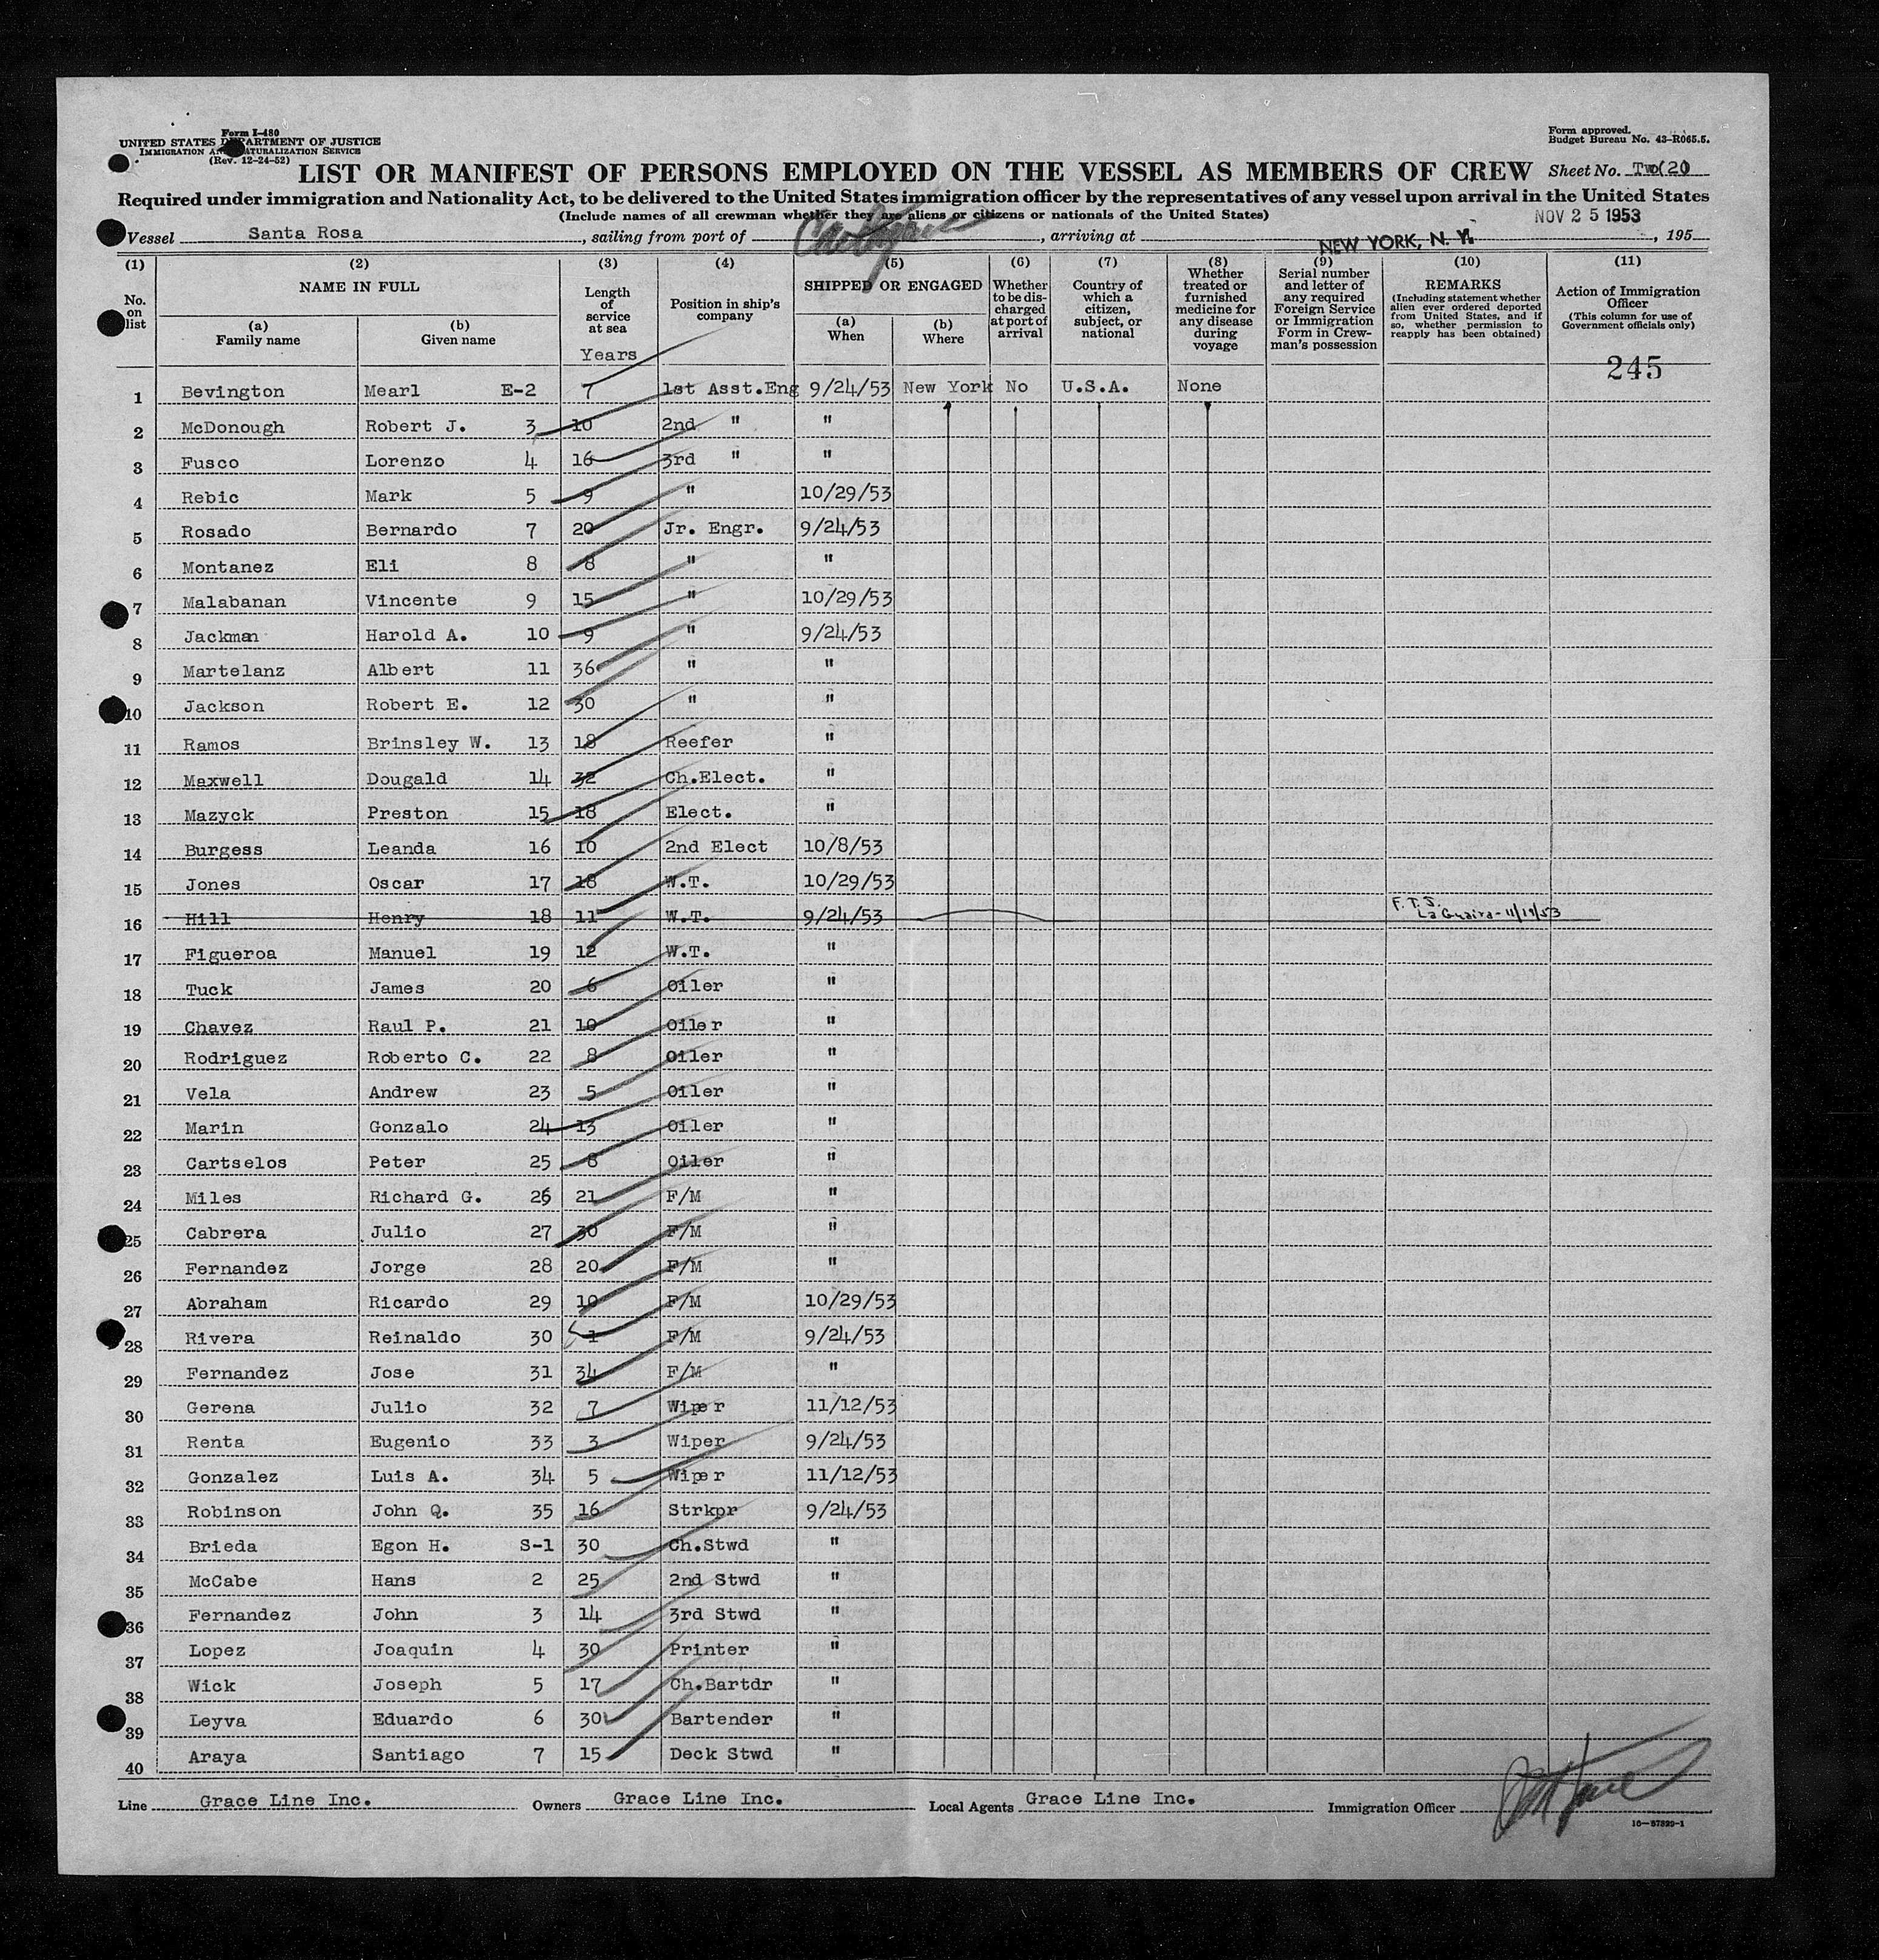 Form I-480
UNITED STATES DEPARTMENT OF JUSTICE
IMMIGRATION AND NATURALIZATION SERVICE
(Rev. 12-24-52)
Form approved.
Budget Bureau No. 43-R065.5.
LIST OR MANIFEST OF PERSONS EMPLOYED ON THE VESSEL AS MEMBERS OF CREW Sheet No. Two(2)
Required under immigration and Nationality Act, to be delivered to the United States immigration officer by the representatives of any vessel upon arrival in the United States
(Include names of all crewman whether they are aliens or citizens or nationals of the United States)
NOV 25 1953
Vessel Santa Rosa, sailing from port of , arriving at NEW YORK, N. Y., 195
(1) (2) (3) (4) (5) (6) (7) (8) (9) (10) (11)
No. on list
NAME IN FULL
(a) Family name
(b) Given name
Length of service at sea
Years
Position in ship's company
SHIPPED OR ENGAGED
(a) When
(b) Where
Whether to be discharged at port of arrival
Country of which a citizen, subject, or national
Whether treated or furnished medicine for any disease during voyage
Serial number and letter of any required Foreign Service or Immigration Form in Crewman's possession
REMARKS
(Including statement whether alien ever ordered deported from United States, and if so, whether permission to reapply has been obtained)
Action of Immigration Officer
(This column for use of Government officials only)
245
1 Bevington Mearl E-2 7 1st Asst.Eng 9/24/53 New York No U.S.A. None
2 McDonough Robert J. 3 10 2nd " "
3 Fusco Lorenzo 4 16 3rd " "
4 Rebic Mark 5 9 " 10/29/53
5 Rosado Bernardo 7 20 Jr. Engr. 9/24/53
6 Montanez Eli 8 8 " "
7 Malabanan Vincente 9 15 " 10/29/53
8 Jackman Harold A. 10 9 " 9/24/53
9 Martelanz Albert 11 36 " "
10 Jackson Robert E. 12 30 " "
11 Ramos Brinsley W. 13 18 Reefer "
12 Maxwell Dougald 14 32 Ch.Elect. "
13 Mazyck Preston 15 18 Elect. "
14 Burgess Leanda 16 10 2nd Elect 10/8/53
15 Jones Oscar 17 18 W.T. 10/29/53
16 Hill Henry 18 11 W.T. 9/24/53 F.T.J. La Guaira-11/19/53
17 Figueroa Manuel 19 12 W.T. "
18 Tuck James 20 6 Oiler "
19 Chavez Raul P. 21 10 Oiler "
20 Rodriguez Roberto C. 22 8 Oiler "
21 Vela Andrew 23 5 Oiler "
22 Marin Gonzalo 24 13 Oiler "
23 Cartselos Peter 25 8 Oiler "
24 Miles Richard G. 26 21 F/M "
25 Cabrera Julio 27 30 F/M "
26 Fernandez Jorge 28 20 F/M "
27 Abraham Ricardo 29 10 F/M 10/29/53
28 Rivera Reinaldo 30 1 F/M 9/24/53
29 Fernandez Jose 31 34 F/M "
30 Gerena Julio 32 7 Wiper 11/12/53
31 Renta Eugenio 33 3 Wiper 9/24/53
32 Gonzalez Luis A. 34 5 Wiper 11/12/53
33 Robinson John Q. 35 16 Strkpr 9/24/53
34 Brieda Egon H. S-1 30 Ch.Stwd "
35 McCabe Hans 2 25 2nd Stwd "
36 Fernandez John 3 14 3rd Stwd "
37 Lopez Joaquin 4 30 Printer "
38 Wick Joseph 5 17 Ch.Bartdr "
39 Leyva Eduardo 6 30 Bartender "
40 Araya Santiago 7 15 Deck Stwd "
Line Grace Line Inc. Owners Grace Line Inc. Local Agents Grace Line Inc. Immigration Officer
16—67399-1